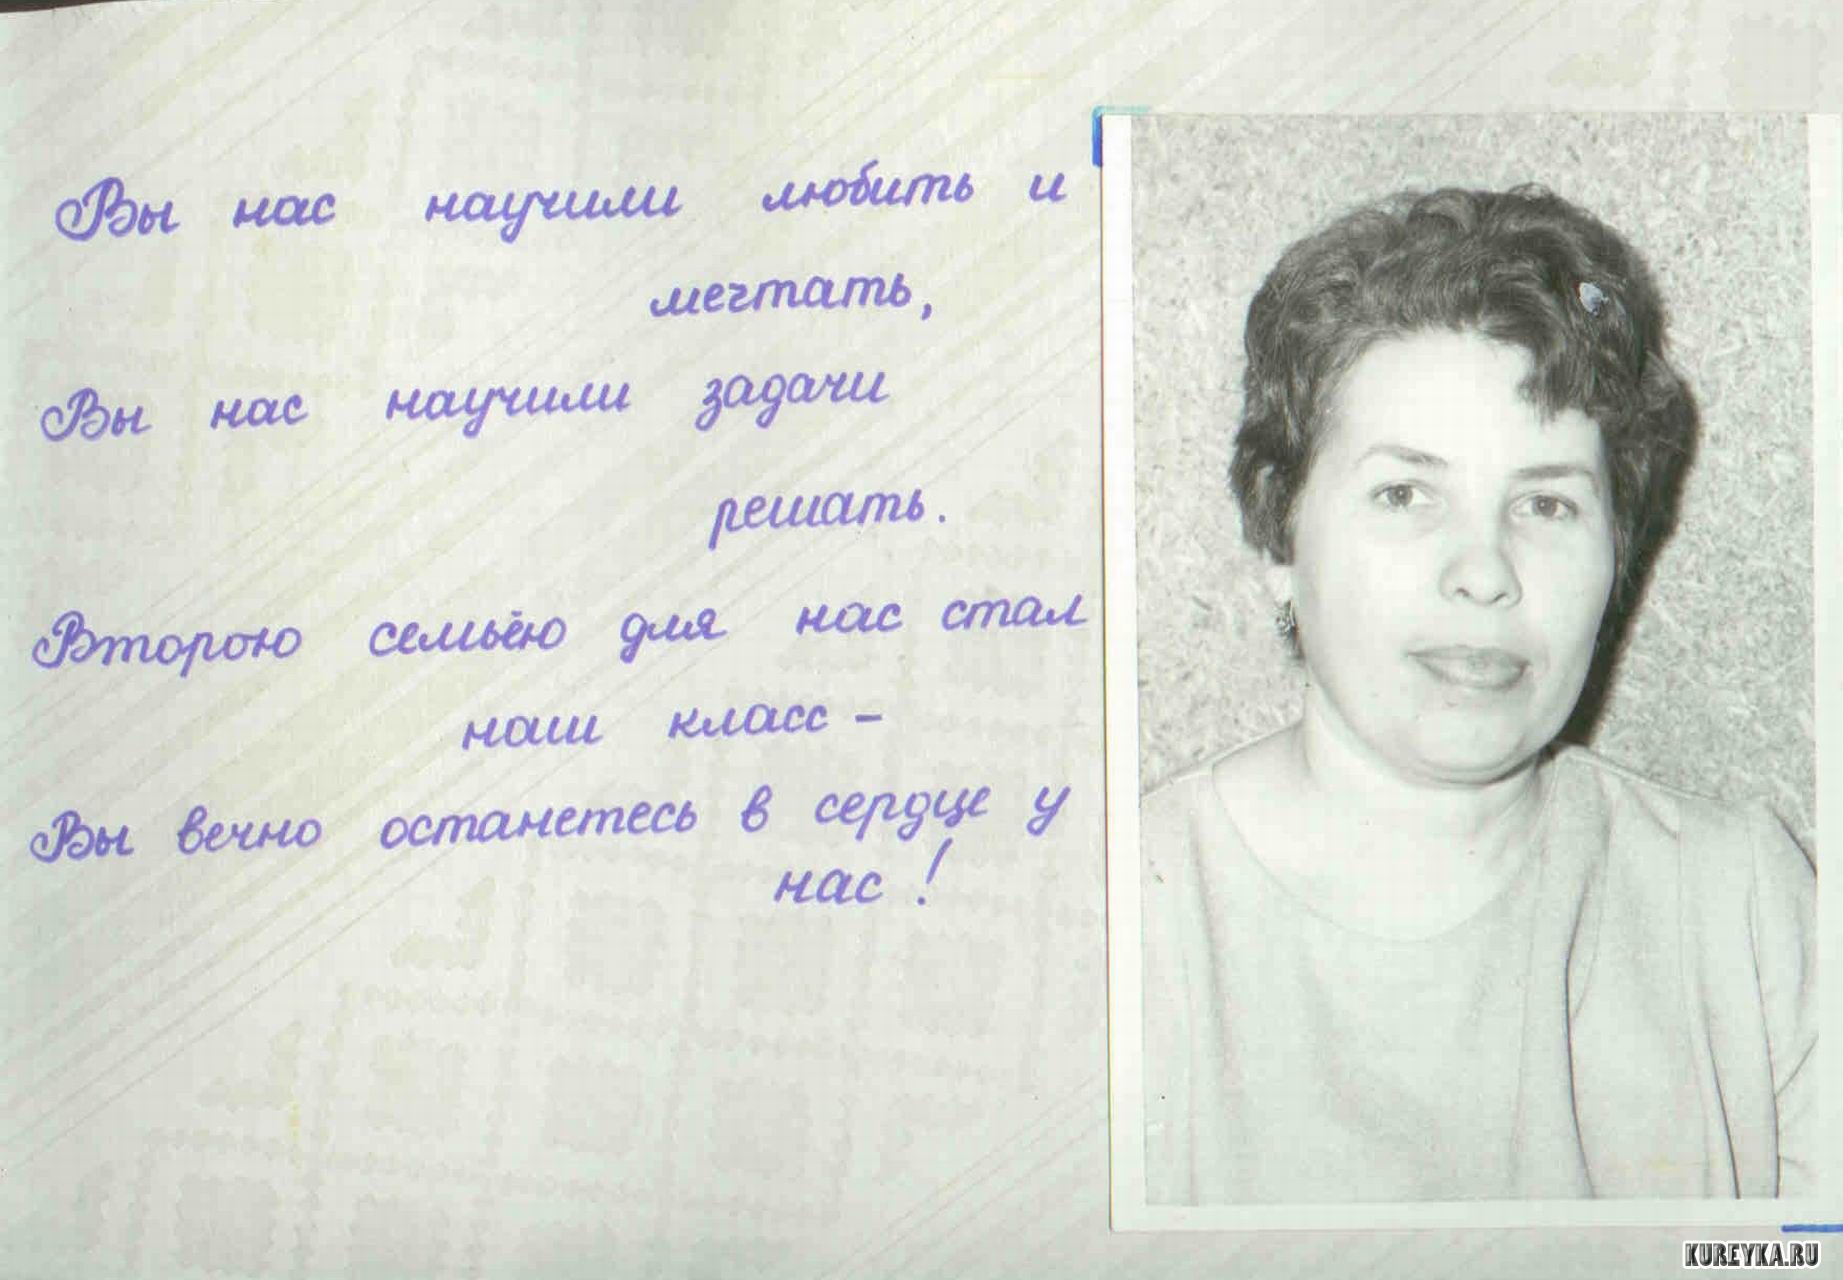 Вы нас научили любить и
мечтать,
Вы нас научили задачи
решать.
Второю семьёю для нас стал
наш класс -
Вы вечно останетесь в сердце у
нас!
KUREYKA.RU